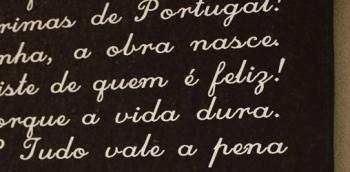 rimas de Portugal!
nha, a obra nasce.
iste de quem é feliz!
orque a vida dura.
? Tudo vale a pena